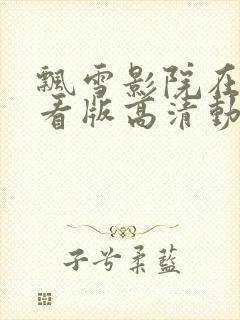 飘雪影院在
看版高清動
子兮柔藍